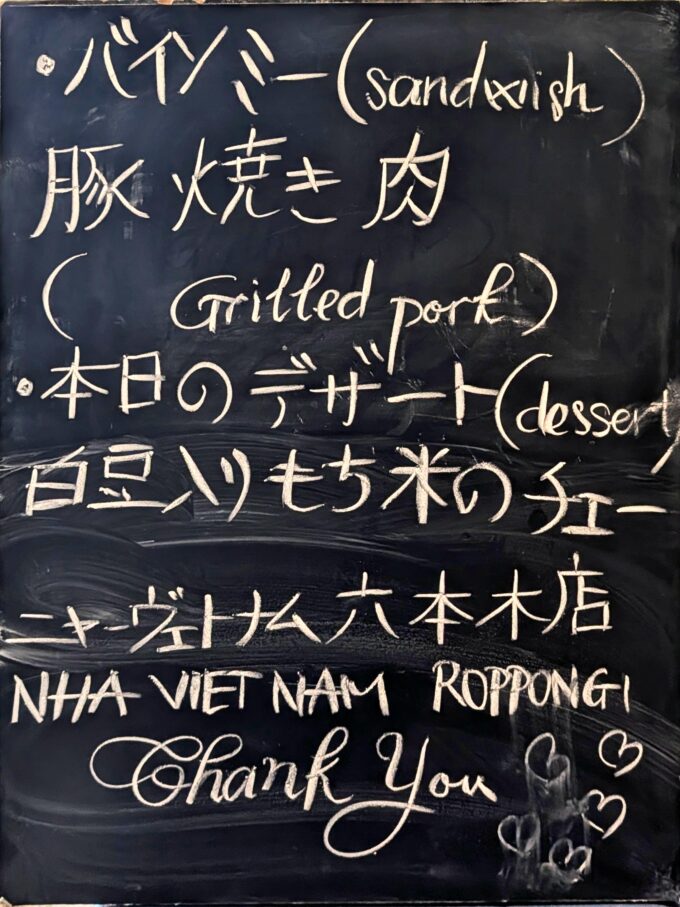 ・バインミー(sandwish)
豚焼き肉
(Grilled pork)
・本日のデザート(dessert)
白豆入りもち米のチェー
ニャーヴェトナム六本木店
NHA VIET NAM ROPPONGI
Thank You